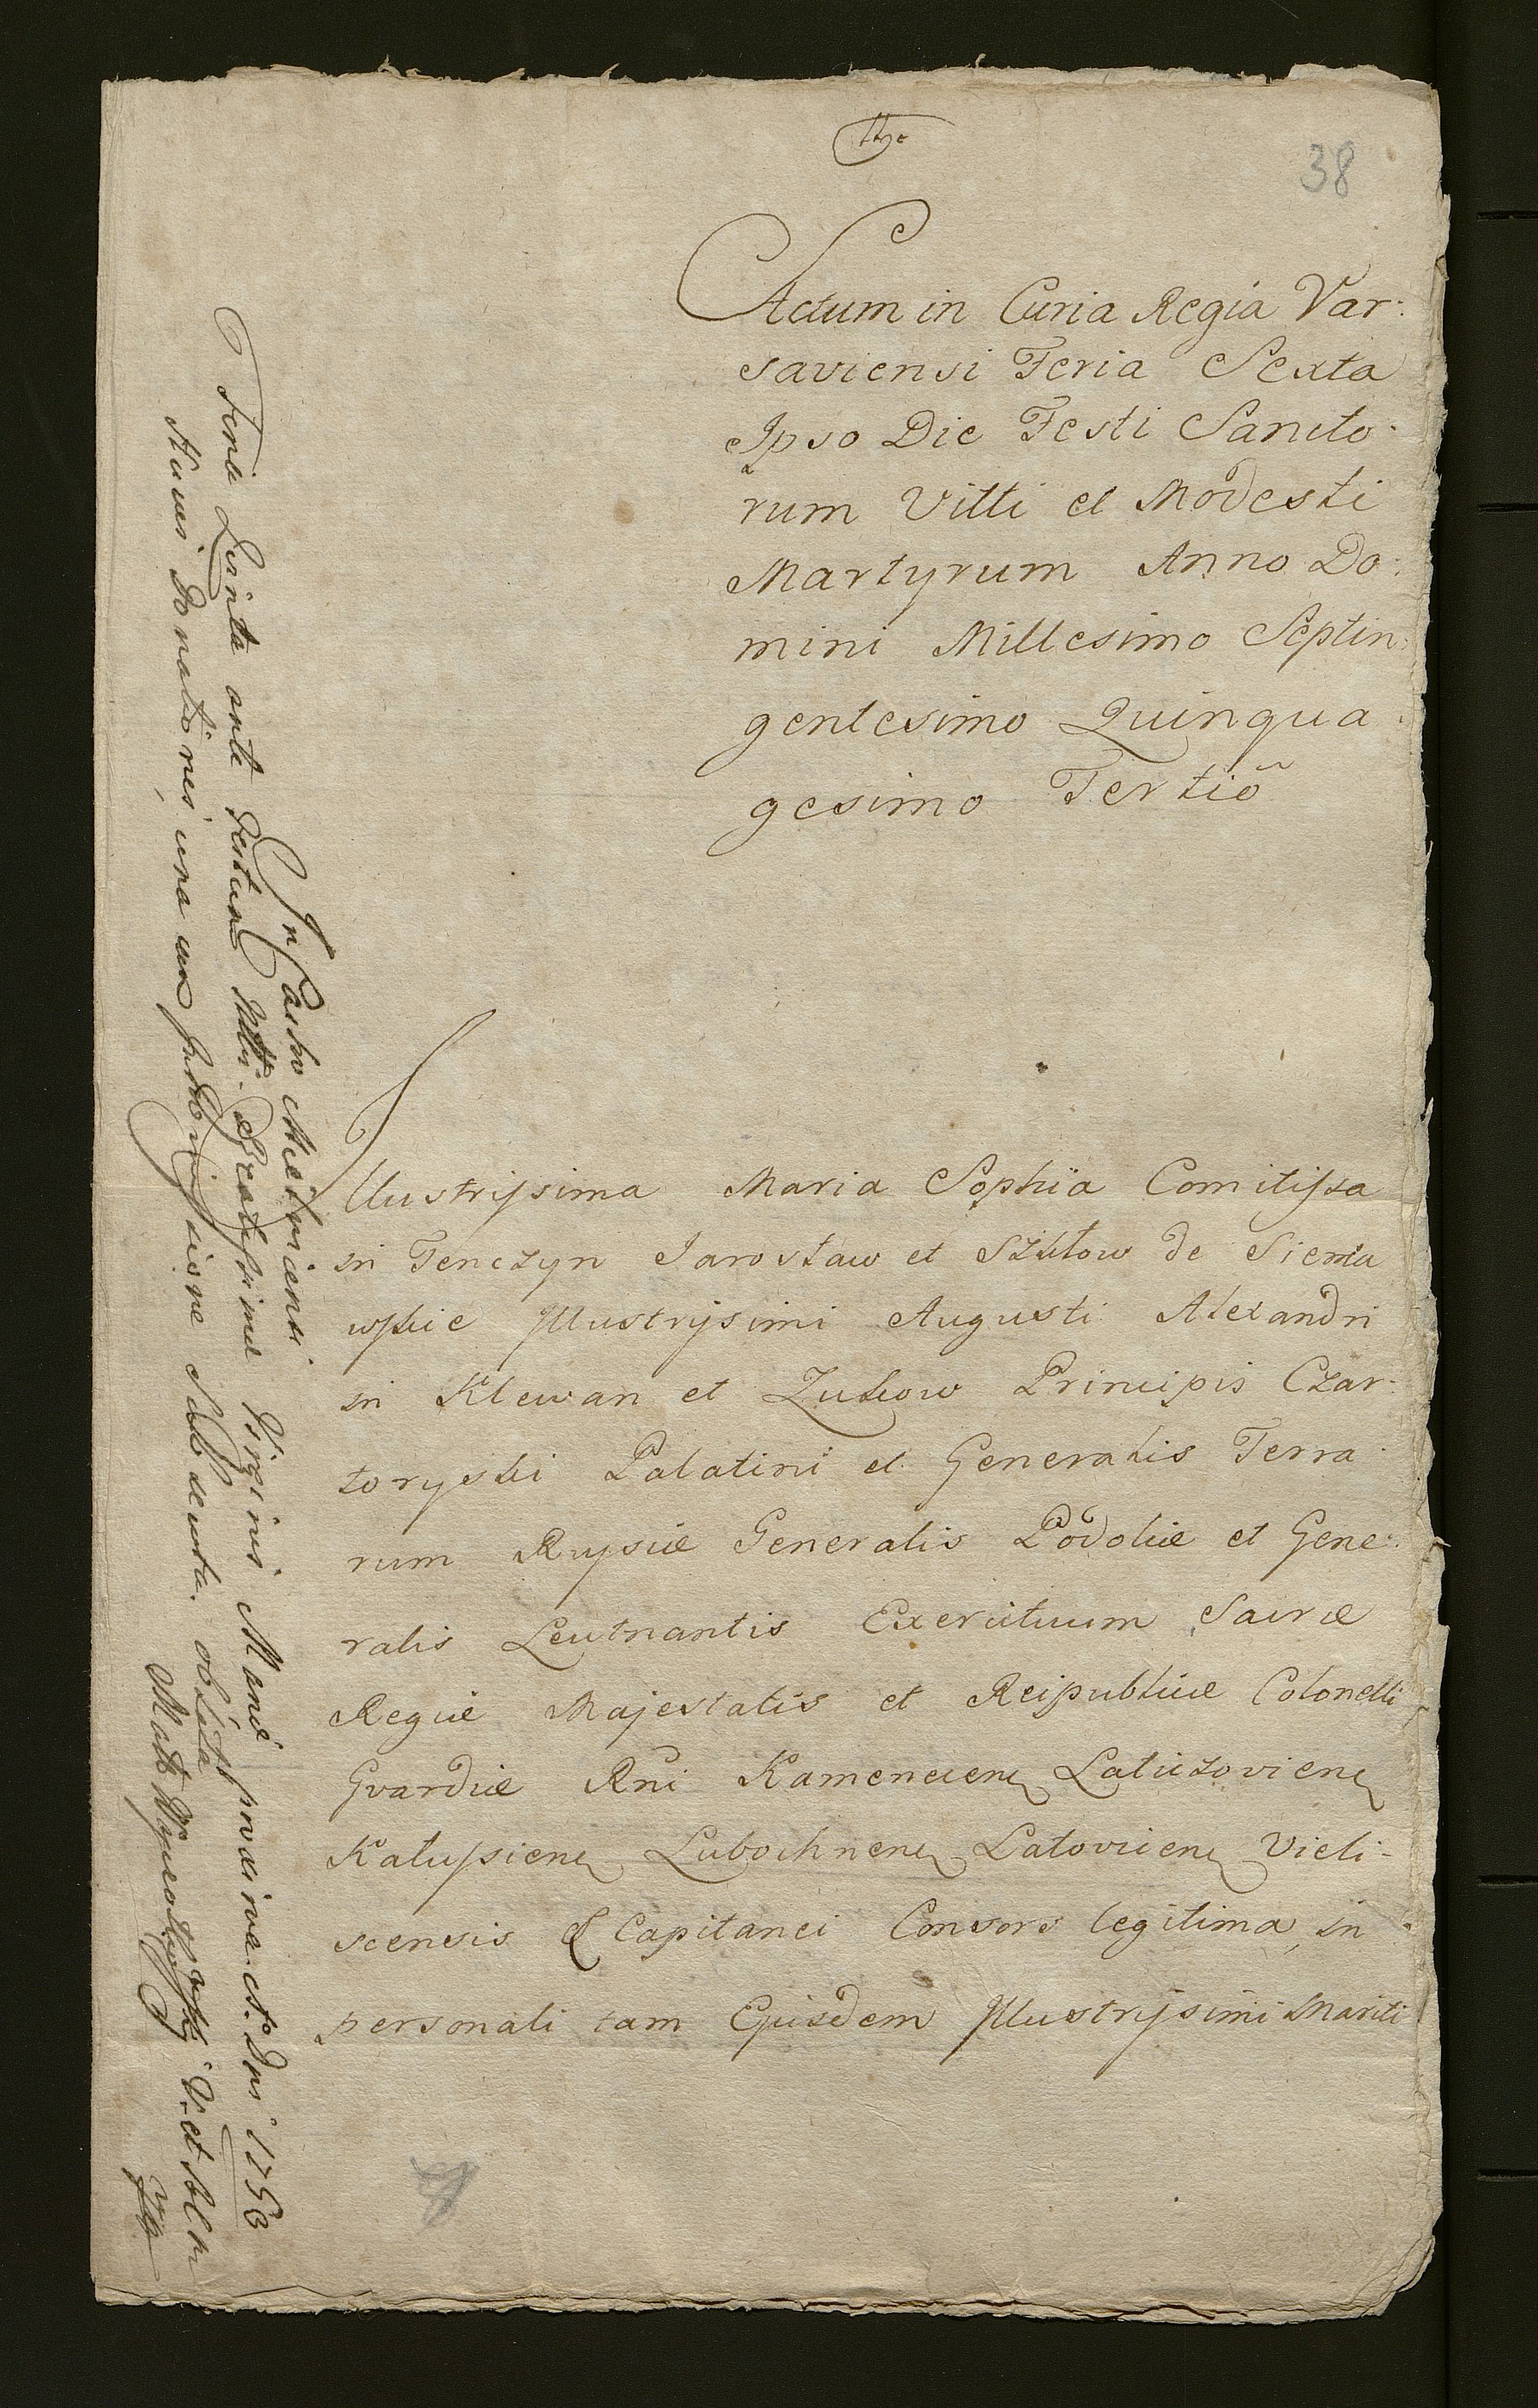 38
Actum in Curia Regia Var:
saviensi Feria Sexta
Ipso Die Festi Sancto:
rum Vitti et Modesti
Martyrum Anno Do:
mini Millesimo Septin:
gentesimo Quinqua:
gesimo Tertiõ
Illustrissima Maria Sophia Comitissa
in Tenczyn Jarosław et Szkłow de Sienia
wskie Illustrissimi Augusti Alexandri
in Klewan et Zukow Principis Czar:
toryski Palatini et Generalis Terra:
rum Russiæ Generalis Podoliæ et Gene:
ralis Leutnantis Exercituum Sacræ
Regiæ Majestatis et Reipublicæ Colonelli
Gvardiæ Rñi Kamenecien Laticzovien
Kałussien Lubochnen Latovicien Vieli-
scensis & Capitanei Consors legitima, in
personali tam Ejusdem Illustrissimi Mariti
In Castro
Feria Quinta ante Festum Beatissimæ Virginis Mariæ proxime Ao Dni 1753
Donationis, una cum Subscripta oblata